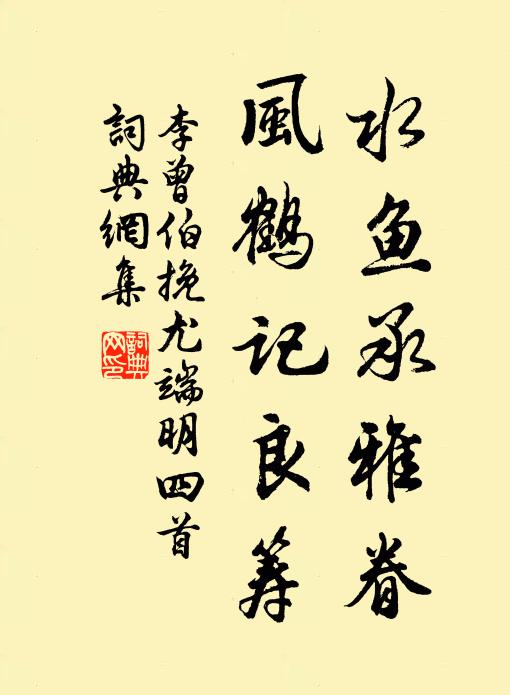 水鱼承雅眷
風鶴記良筹
李曾伯挽尤端明四首
詞典網集
詞典網印